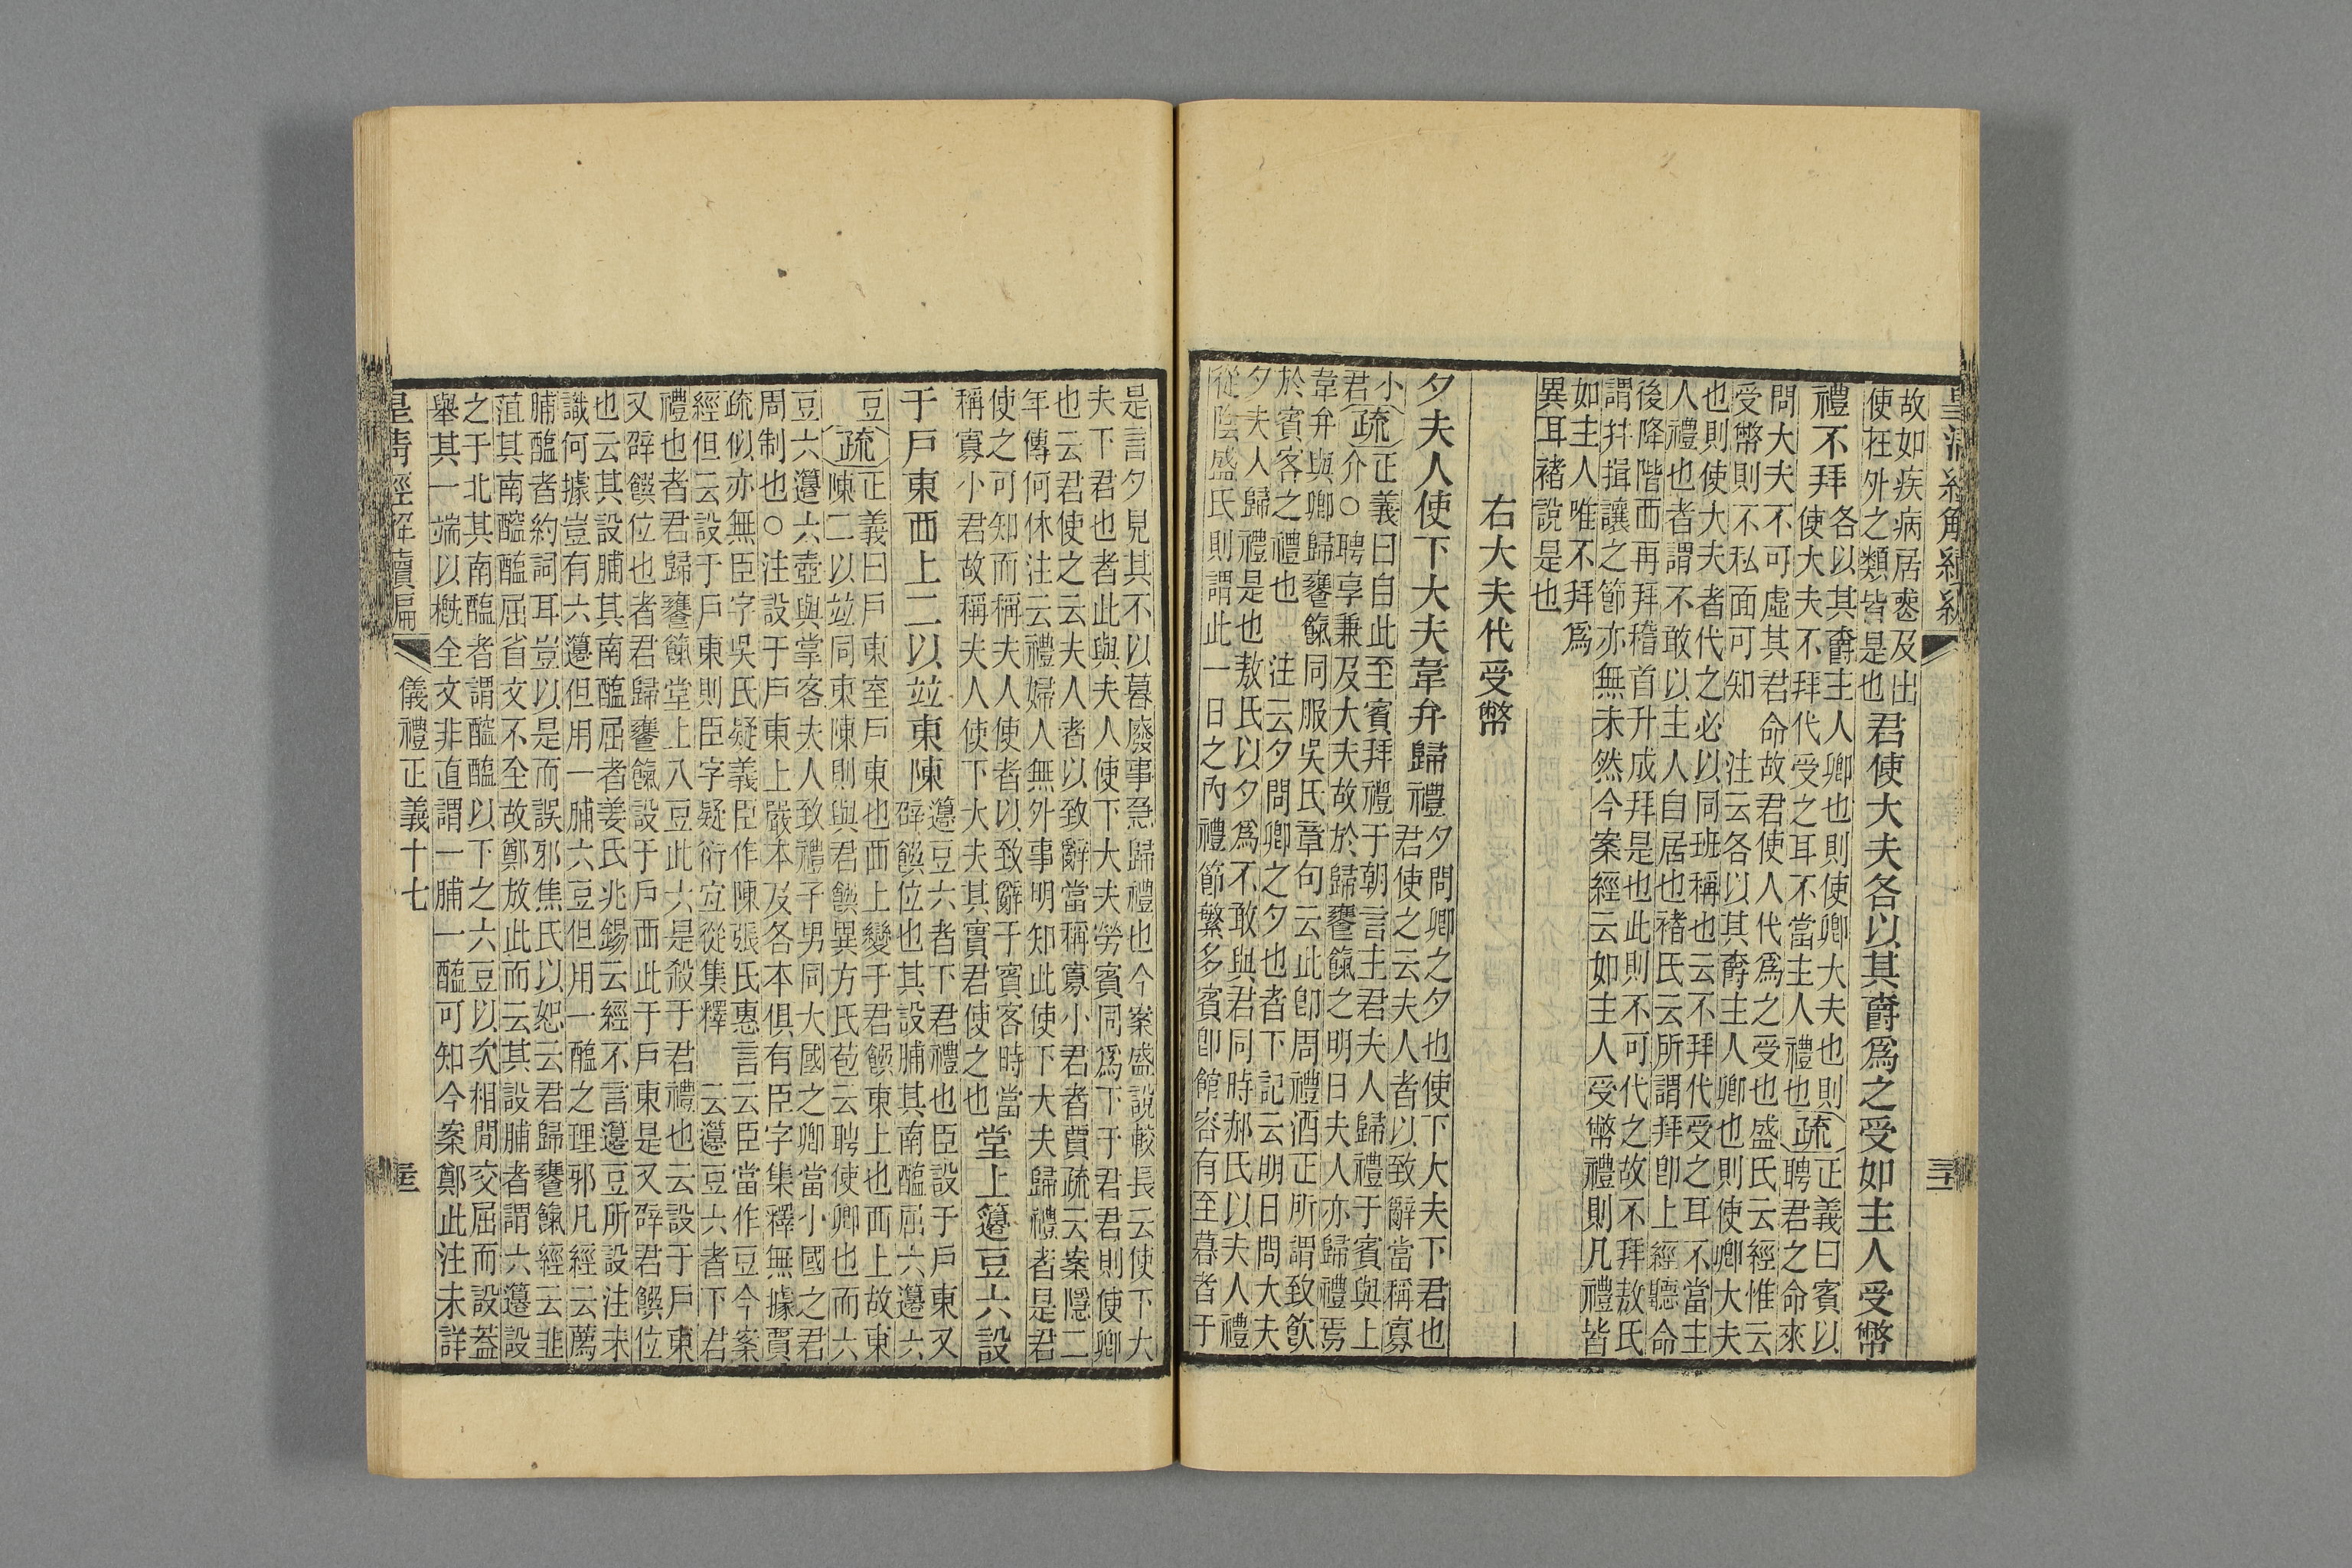 故如疾病居喪及出
使在外之類皆是也
君使大夫各以其爵爲之受如主人受幣
禮不拜
各以其爵主人卿也則使卿大夫也則
使大夫不拜代受之耳不當主人禮也
疏
正義曰賓以
聘君之命來
問大夫不可虛其君命故君使人代爲之受也盛氏云經惟云
受幣則不私面可知 注云各以其爵主人卿也則使卿大夫
也則使大夫者代之必以同班稱也云不拜代受之耳不當主
人禮也者謂不敢以主人自居也褚氏云所謂拜卽上經聽命
後降階而再拜稽首升成拜是也此則不可代之故不拜敖氏
謂幷揖讓之節亦無未然今案經云如主人受幣禮則凡禮皆
如主人唯不拜爲
異耳褚說是也
右大夫代受幣
夕夫人使下大夫韋弁歸禮
夕問卿之夕也使下大夫下君也
君使之云夫人者以致辭當稱寡
小
君
疏
正義曰自此至賓拜禮于朝言主君夫人歸禮于賓與上
介○聘享兼及大夫故於歸饔餼之明日夫人亦歸禮焉
韋弁與卿歸饔餼同服吳氏章句云此卽周禮酒正所謂致飮
於賓客之禮也 注云夕問卿之夕也者下記云明日問大夫
夕夫人歸禮是也敖氏以夕爲不敢與君同時郝氏以夫人禮
從陰盛氏則謂此一日之內禮節繁多賓卽館容有至暮者于
是言夕見其不以暮廢事急歸禮也今案盛說較長云使下大
夫下君也者此與夫人使下大夫勞賓同爲下于君君則使卿
也云君使之云夫人者以致辭當稱寡小君者賈疏云案隱二
年傳何休注云禮婦人無外事明知此使下大夫歸禮者是君
使之可知而稱夫人使者以致辭于賓客時當
稱寡小君故稱夫人使下大夫其實君使之也
堂上籩豆六設
于戶東西上二以竝東陳
籩豆六者下君禮也臣設于戶東又
辟饌位也其設脯其南醢屈六籩六
豆
疏
正義曰戶東室戶東也西上變于君饌東上也西上故東
陳二以竝同東陳則與君饌異方氏苞云聘使卿也而六
豆六籩六壺與掌客夫人致禮子男同大國之卿當小國之君
周制也○注設于戶東上嚴本及各本俱有臣字集釋無據賈
疏似亦無臣字吳氏疑義臣作陳張氏惠言云臣當作豆今案
經但云設于戶東則臣字疑衍宜從集釋 云籩豆六者下君
禮也者君歸饔餼堂上八豆此六是殺于君禮也云設于戶東
又辟饌位也者君歸饔餼設于戶西此于戶東是又辟君饌位
也云其設脯其南醢屈者姜氏兆錫云經不言籩豆所設注未
識何據豈有六籩但用一脯六豆但用一醢之理邪凡經云薦
脯醢者約詞耳豈以是而誤邪焦氏以恕云君歸饔餼經云韭
菹其南醓醢屈省文不至故鄭放此而云其設脯者謂六籩設
之于北其南醢者謂醓醢以下之六豆以次相閒交屈而設葢
舉其一端以槪全文非直謂一脯一醢可知今案鄭此注未詳
儀禮正義十七